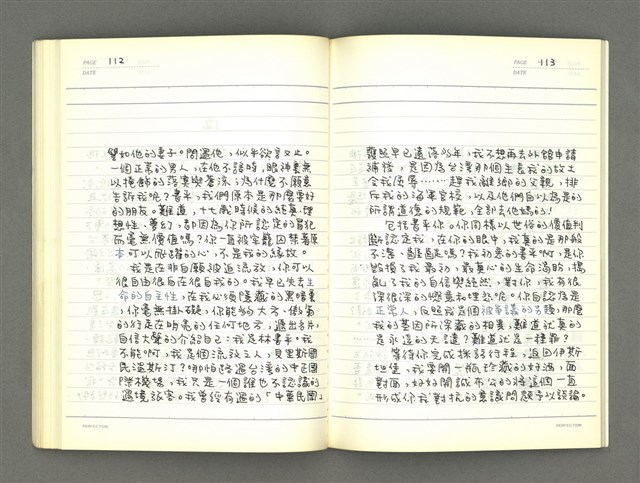 PAGE 112
DATE
譬如他的妻子。問過他，似乎欲言又止。
一個正常的男人，在他不語時，眼神毫無
以掩飾的落寞與蒼涼，為什麼不願意
告訴我呢？書平，我們原本是那麼要好
的朋友。難道，十七歲時候的純真、理
想性、夢幻，都因為你所認定的冒犯
而毫無價值嗎？你一直被牢籠囚禁著原
本可以飛躍的心，不是我的緣故。
我是在非自願被迫流放，你可以
很自由很自在很自我的。我早已失去生
命的自主性，在我必須隱藏的黑暗裏
，你毫無掛礙，你能夠大方、傲氣
的行走在明亮的任何地方，遞出名片，
自信大聲的介紹自己：我是林書平。我
不能啊，我是個流放之人，貝里斯國
民溫斯汀？哪怕路過台灣的中正國
際機場，我只是一個誰也不認識的
過境旅客。我曾經有過的「中華民國」
PERFECTION
PAGE 113
DATE
護照早已遺落多年，我不想再去外館申請
補發，是因為台灣那個生長我的故土
令我屈辱……趕我離鄉的父親，排
斥我的海軍官校，以及他們自以為是的
所謂道德的規範，全部去他媽的！
包括書平你。你同樣以世俗的價值判
斷認定我，在你的眼中，我真的是那般
不潔、齷齪嗎？我初意的書平啊，是你
毀損了我最初、最真心的生命渴盼，搗
亂了我的自信與純然，對你，我有很
深很深的憾意和埋怨呢。你自認為是
正常人，反照我是個被爭議的另類，那麼
我的基因所深藏的相異，難道就真的
是永遠的天譴？難道就是一種罪？
等待你完成採訪行程，返回伊斯
坦堡，我要開一瓶珍藏的好酒，面
對面，好好開誠布公的將這個一直
形成你我對抗的意識問題予以談論。
PERFECTION